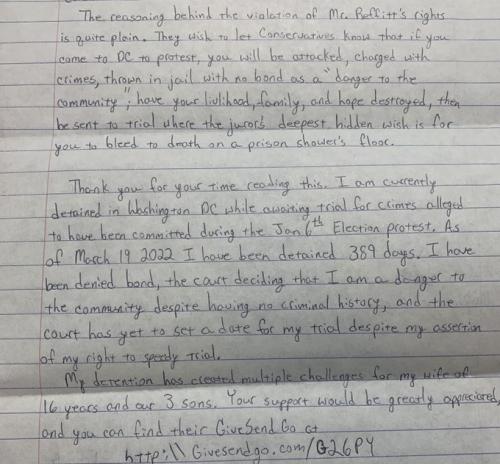 The reasoning behind the violation of Mr. Reffitt's rights
is quite plain. They wish to let Conservatives know that if you
come to DC to protest, you will be attacked, charged with
crimes, thrown in jail with no bond as a "danger to the
community", have your livlihood, family, and hope destroyed, then
be sent to trial where the juror's deepest hidden wish is for
you to bleed to death on a prison shower's floor.
Thank you for your time reading this. I am currently
detained in Washington DC while awaiting trial for crimes alleged
to have been committed during the Jan 6th Election protest. As
of March 19 2022 I have been detained 389 days. I have
been denied bond, the court deciding that I am a danger to
the community despite having no criminal history, and the
court has yet to set a date for my trial despite my assertion
of my right to speedy trial.
My detention has created multiple challenges for my wife of
16 years and our 3 sons. Your support would be greatly appreciated,
and you can find their GiveSendGo at
http:\\Givesendgo.com/G26PY